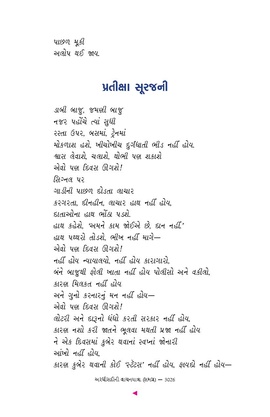 પાછળ મૂકી
અલોપ થઈ જાય.
પ્રતીક્ષા સૂરજની
ડાબી બાજુ, જમણી બાજુ
નજર પહોંચે ત્યાં સુધી
રસ્તા ઉપર, બસમાં, ટ્રેનમાં
મોકળાશ હશે, ખીચોખીચ દુર્ગંધાતી ભીડ નહીં હોય.
શ્વાસ લેવાશે, ચલાશે, થોભી પણ શકાશે
એવો પણ દિવસ ઊગશે!
સિગ્નલ પર
ગાડીની પાછળ દોડતા લાચાર
કરગરતા, દીનહીન, લાચાર હાથ નહીં હોય,
દાતાઓના હાથ ભોંઠા પડશે.
હાથ કહેશે, 'અમને કામ જોઈએ છે, દાન નહીં.'
હાથ પથ્થરો તોડશે, ભીખ નહીં માગે—
એવો પણ દિવસ ઊગશે!
નહીં હોય ન્યાયાલયો, નહીં હોય કારાગારો,
બંને બાજુથી ફોલી ખાતા નહીં હોય પોલીસો અને વકીલો,
કારણ મિલકત નહીં હોય
અને ગુનો કરનારનું મન નહીં હોય—
એવો પણ દિવસ ઊગશે!
લોટરી અને દારૂનો ધંધો કરતી સરકાર નહીં હોય,
કારણ નશો કરી જાતને ભૂલવા મથતી પ્રજા નહીં હોય
ને એક દિવસમાં કુબેર થવાનાં સ્વપ્નાં જોનારી
આંખો નહીં હોય,
કારણ કુબેર થવાની કોઈ 'સ્ટેટસ' નહીં હોય, ફાયદો નહીં હોય—